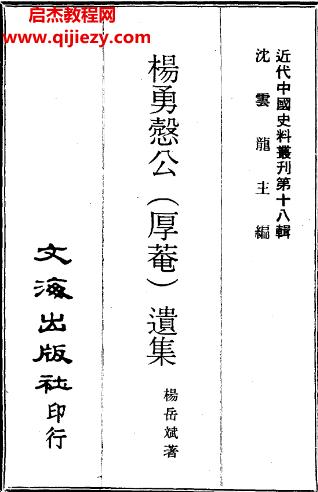 启杰教程网
www.qijiezy.com
近代中國史料叢刊第十八輯
沈雲龍主編
楊勇慤公（厚菴）遺集
楊岳斌著
文海出版社印行